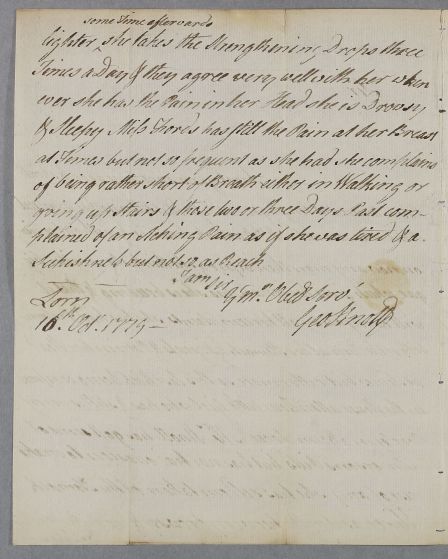 some time afterwards
lighter, she takes the strengthening Drops three
Times a Day & they agree very well with her when
ever she has the Pain in her Head she is Drowsy
& Sleepy Miss Fhords has still the Pain at her Breast
at Times but not so frequent as she had she complains
of being rather short of Breath either in Walking or
going up Stairs & these two or three Days Past com-
plained of an Aching Pain as if she was tired & a
Sickishness but not so as Reach
I am Sir
Yr. mo. Obed Servt.
Lorn
16th. Oct. 1779 -
Geo